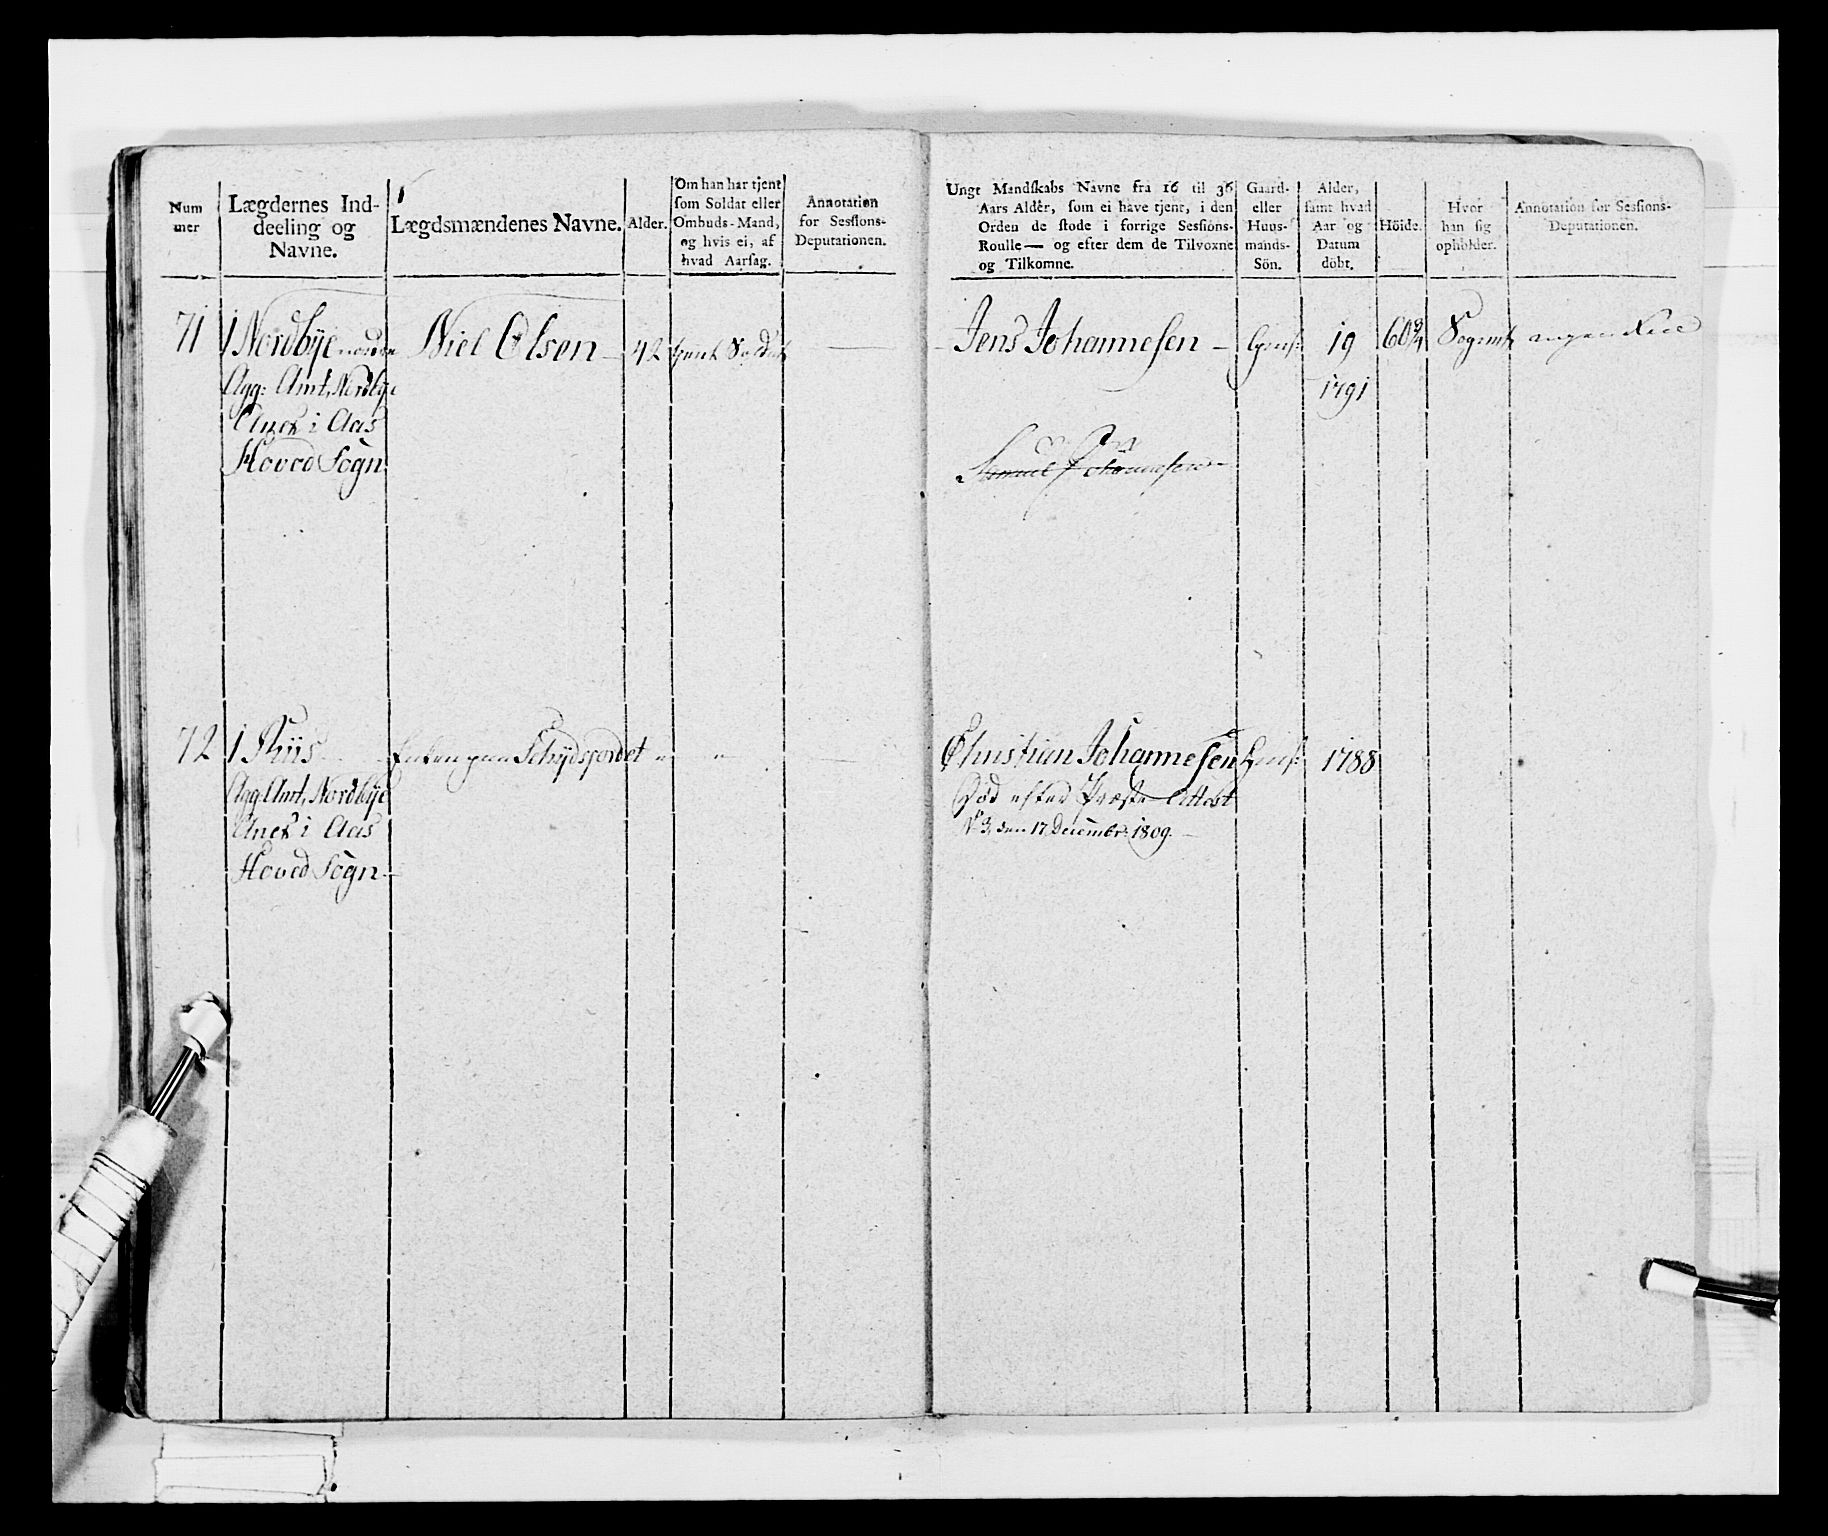 Num
mer
Lægdernes Ind-
deeling og
Navne.
Lægdsmændenes Navne.
Alder.
Om han har tjent
som Soldat eller
Ombuds-Mand,
og hvis ei, af
hvad Aarsag.
Annotation
for Sessions-
Deputationen.
71
1 Nordbye
Agg: Amt, Nordbye
Anex i Aas
Hoved Sogn
Niel Olsen
42
tient Soldat
72
1 Kiis
Agg Amt, Nordbye
Anex i Aas
Hoved Sogn
Enken paa
Ungt Mandskabs Navne fra 16 til 36
Aars Alder, som ei have tjent, i den
Orden de stode i forrige Sessions-
Roulle — og efter dem de Tilvoxne
og Tilkomne.
Gaard-
eller
Huus-
mands-
Sön.
Alder,
samt hvad
Aar og
Datum
döbt.
Höide.
Hvor
han sig
opholder.
Annotation for Sessions-
Deputationen.
Jens Johannesen
19
60 3/4
1791
Samuel Johannesen
Christian Johannesen
1788
Død efter Præste Attest
No 3, den 17 Decembr: 1809